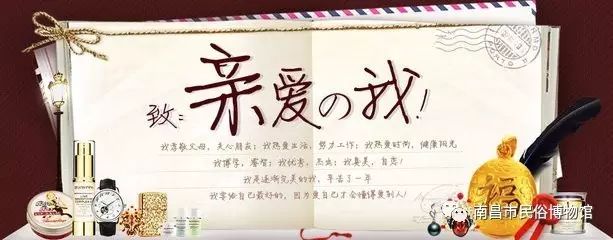 致：亲爱の我！
我孝敬父母，关心朋友；我热爱生活，努力工作；我热爱时尚，健康阳光
我博学，睿智；我优秀，杰出；我真美，自恋！
我是逐渐完美的我，辛苦了一年
我要给自己最好的，因为爱自己才会懂得爱别人！
福
南昌市民俗博物馆